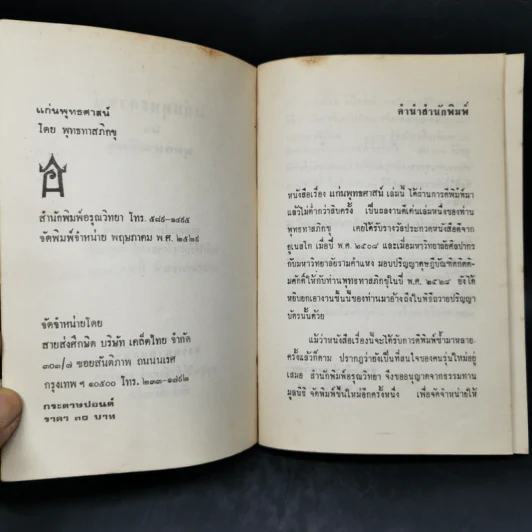 แก่นพุทธศาสน์
โดย พุทธทาสภิกขุ
สำนักพิมพ์อรุณวิทยา โทร. ๕๘๙-๑๔๙๕
จัดพิมพ์จำหน่าย พฤษภาคม พ.ศ. ๒๕๒๙
จัดจำหน่ายโดย
สายส่งศึกษิต บริษัท เคล็ดไทย จำกัด
๓๐๓/๗ ซอยสันติภาพ ถนนนเรศ
กรุงเทพ ฯ ๑๐๕๐๐ โทร. ๒๓๓-๑๘๙๒
กระดาษปอนด์
ราคา ๓๐ บาท
คำนำสำนักพิมพ์
หนังสือเรื่อง แก่นพุทธศาสน์ เล่มนี้ ได้ผ่านการตีพิมพ์มา
แล้วไม่ต่ำกว่าสิบครั้ง เป็นผลงานดีเด่นเล่มหนึ่งของท่าน
พุทธทาสภิกขุ เคยได้รับรางวัลประกวดหนังสือดีจาก
ยูเนสโก เมื่อปี พ.ศ. ๒๕๐๘ และเมื่อมหาวิทยาลัยศิลปากร
กับมหาวิทยาลัยรามคำแหง มอบปริญญาดุษฎีบัณฑิตกิตติ-
มศักดิ์ให้กับท่านพุทธทาสภิกขุในปี พ.ศ. ๒๕๒๘ ยังได้
หยิบยกเอางานชิ้นนี้ของท่านมาอ้างถึงในพิธีถวายปริญญา
บัตรนั้นด้วย
แม้ว่าหนังสือเรื่องนี้จะได้รับการตีพิมพ์ซ้ำมาหลาย-
ครั้งแล้วก็ตาม ปรากฏว่ายังเป็นที่สนใจของคนรุ่นใหม่อยู่
เสมอ สำนักพิมพ์อรุณวิทยา จึงขออนุญาตจากธรรมทาน
มูลนิธิ จัดพิมพ์ขึ้นใหม่อีกครั้งหนึ่ง เพื่อจัดจำหน่ายให้